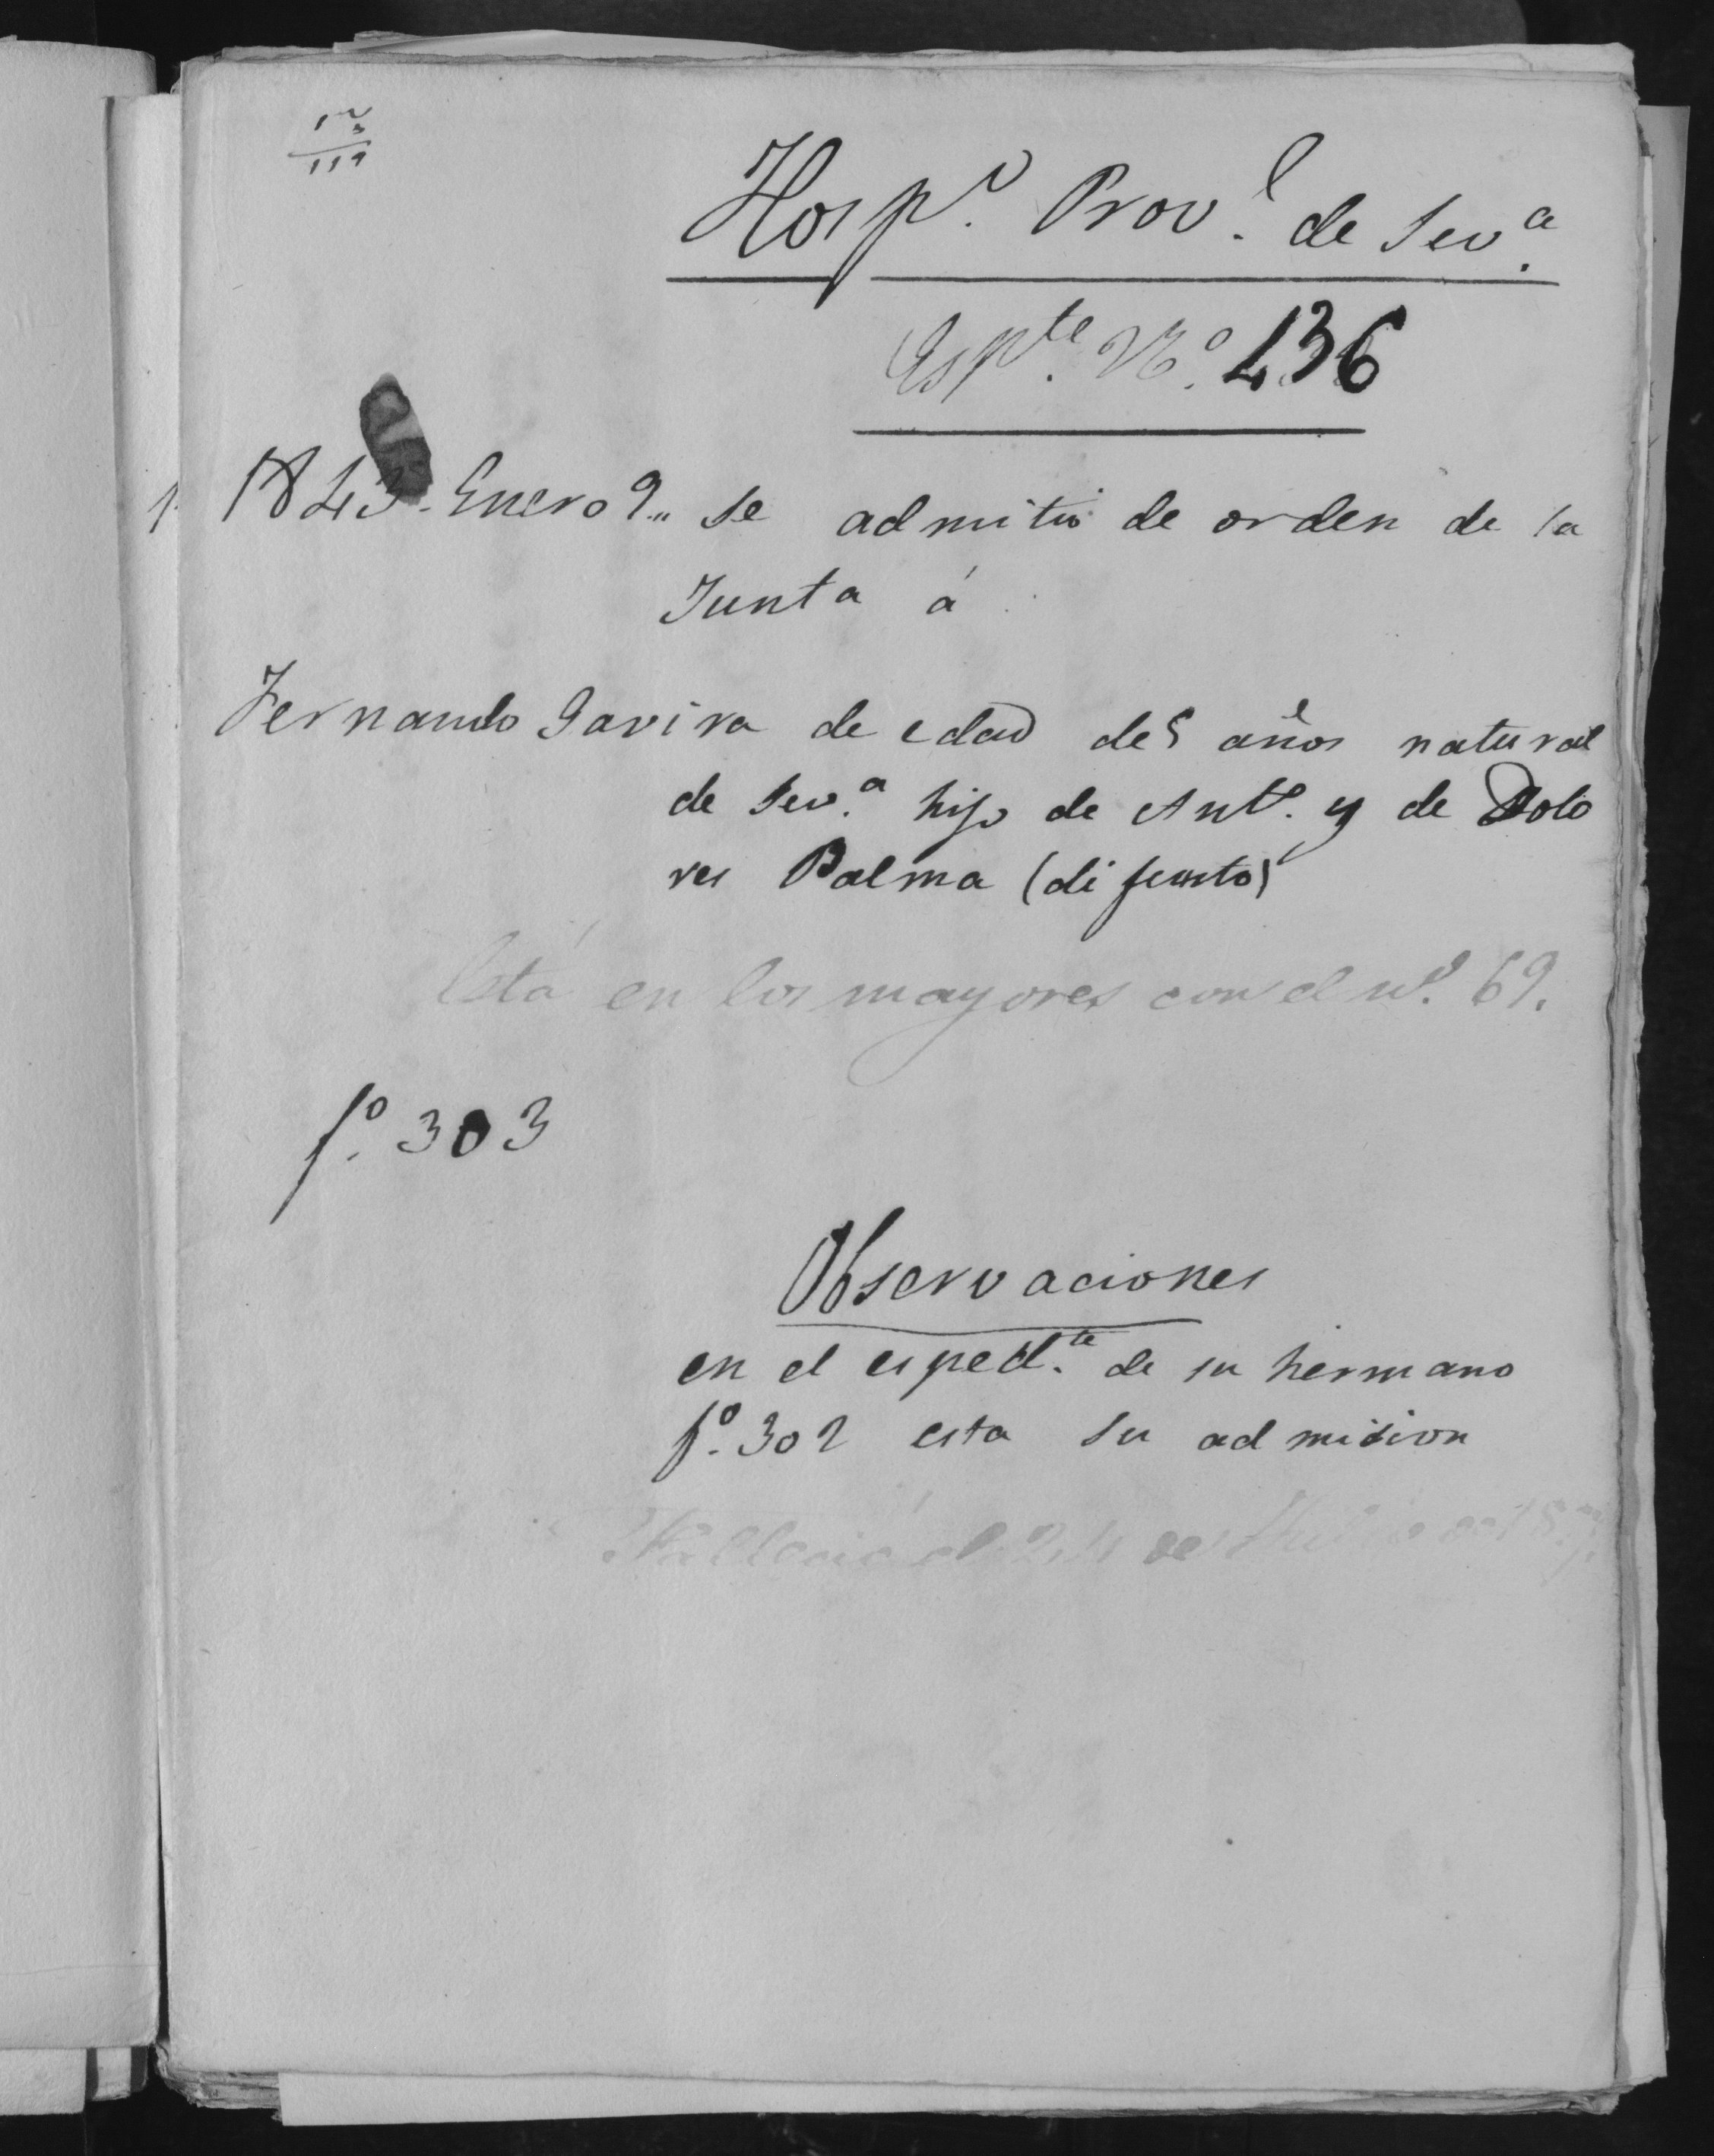 12
3
119
Hospo. Provl. de Seva.
Espte. No. 436
1843 - Enero 9.. se admitió de orden de la
Junta á
Fernando Gavira de edad de 5 años natural
de Seva. hijo de Anto. y de Dolo
res Palma (difunto)
Está en los mayores con el no. 69.
fo. 303
Observaciones
en el espedte. de su hermano
fo. 302 esta su admision
Falleció el 24 de